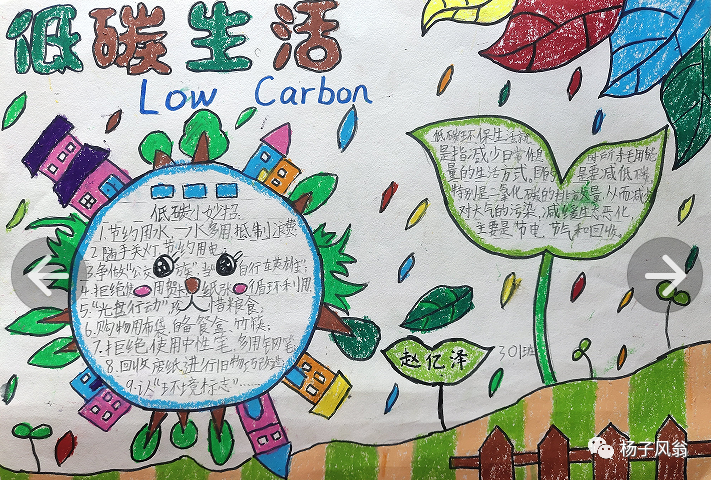 低碳生活
Low Carbon
低碳小妙招:
1.节约用水,一水多用,抵制浪费
2.随手关灯,节约用电;
3.争做“公交 族”, 自行车英雄”;
4.拒绝 用 纸 循环利用
5.“光盘行动”珍 惜粮食;
6.购物用布袋,自备餐盒、竹筷;
7.拒绝使用中性笔,多用钢笔
8.回收废纸进行旧物巧改造
9.认“环境标志”……
低碳环保生活就
是指减少日常 能
量的生活方式,即 是要减低碳
特别是二氧化碳的排放量,从而减
对大气的污染,减缓生态恶化,
主要是节电、节气和回收。
赵亿泽
301班
杨子风翁